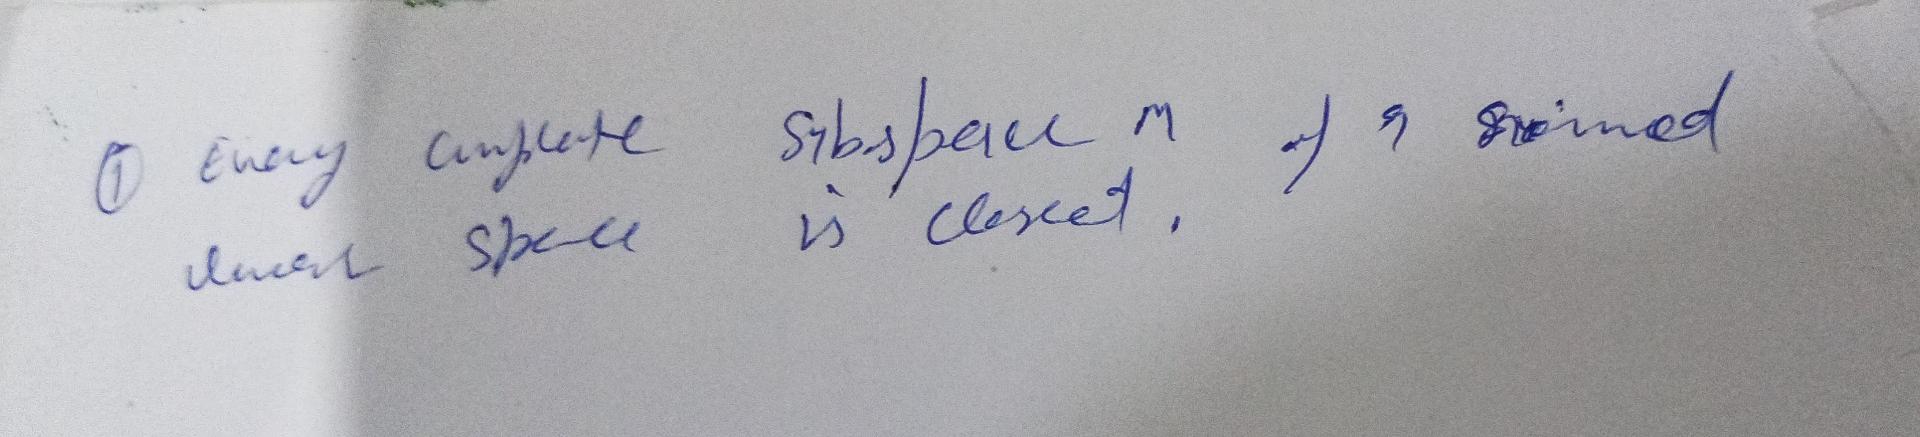 ① Every complete subspace M of a normed
linear space is closed.